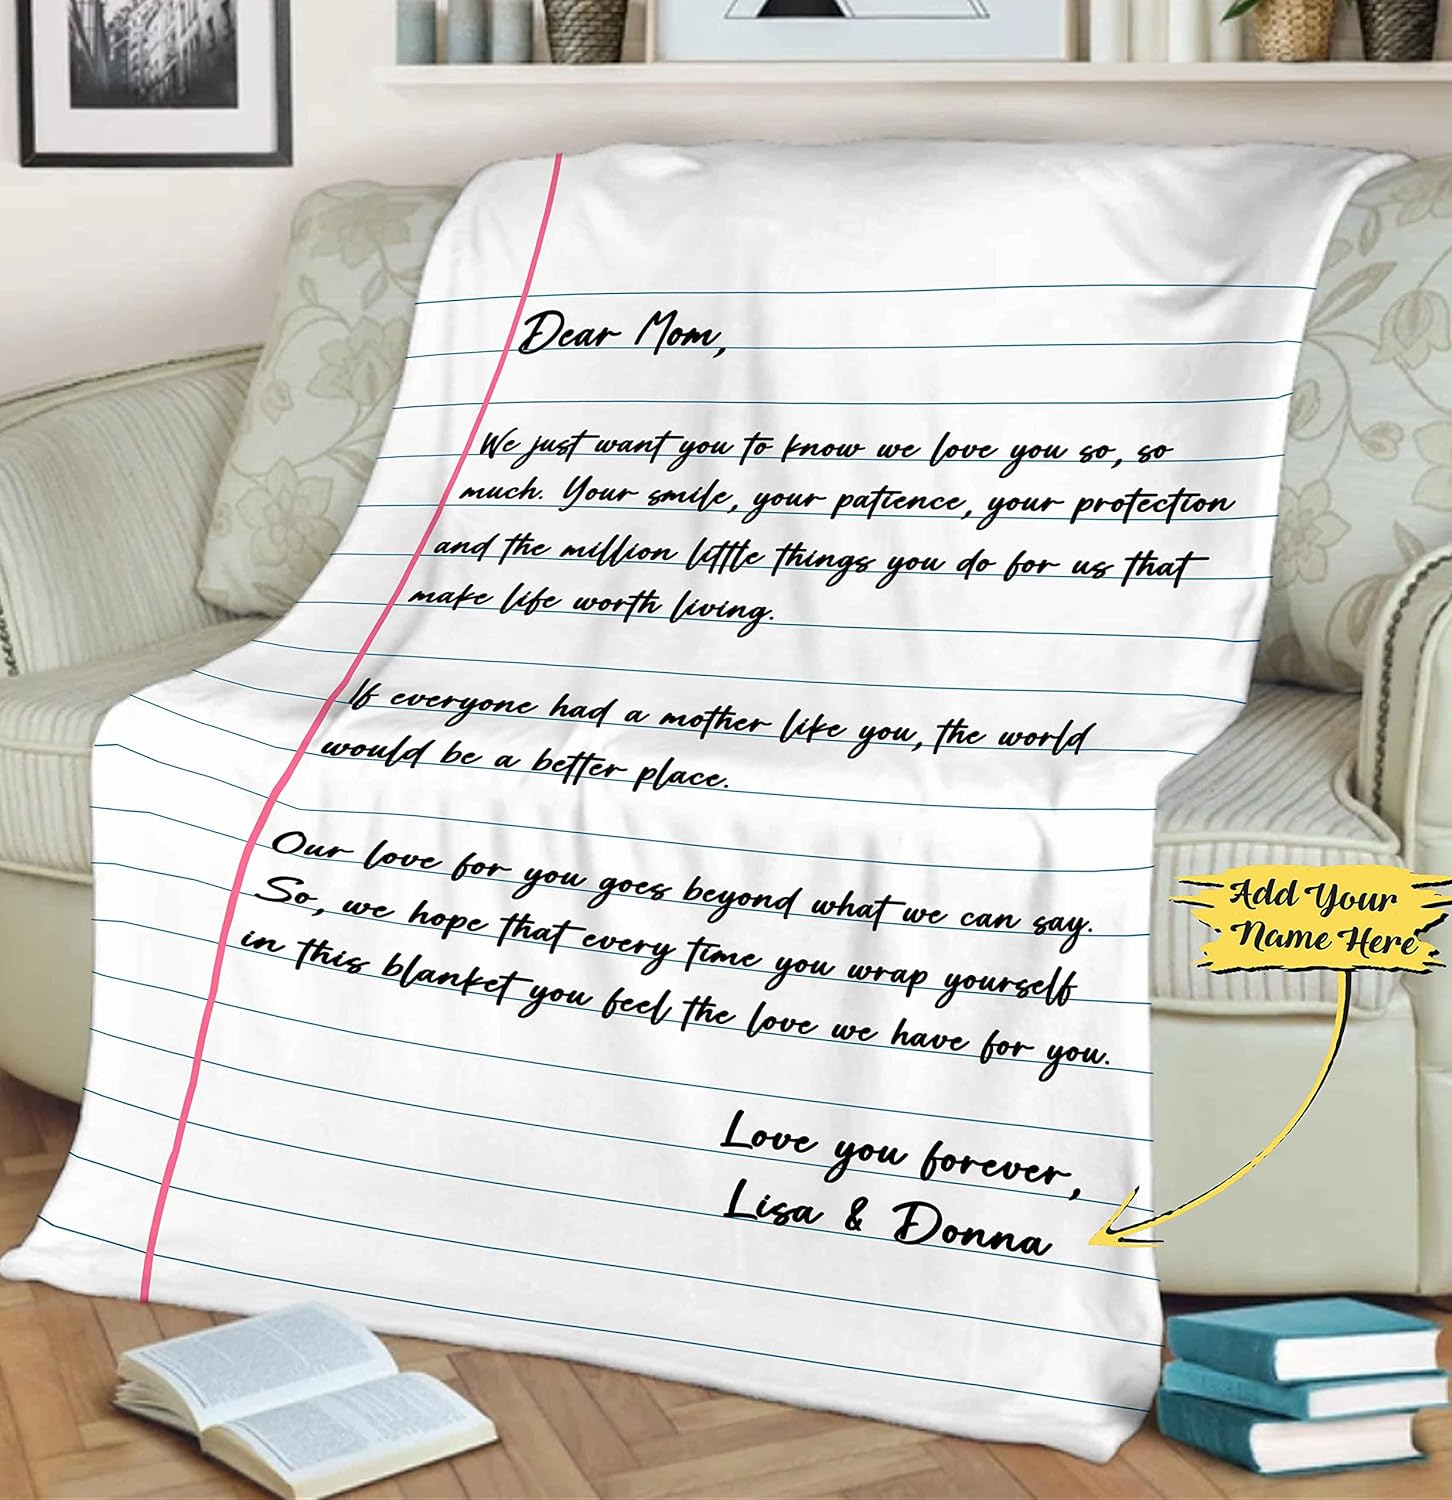 Dear Mom,
We just want you to know we love you so, so
much. Your smile, your patience, your protection
and the million little things you do for us that
make life worth living.
If everyone had a mother like you, the world
would be a better place.
Our love for you goes beyond what we can say.
So, we hope that every time you wrap yourself
in this blanket you feel the love we have for you.
Love you forever,
Lisa & Donna
Add Your
Name Here